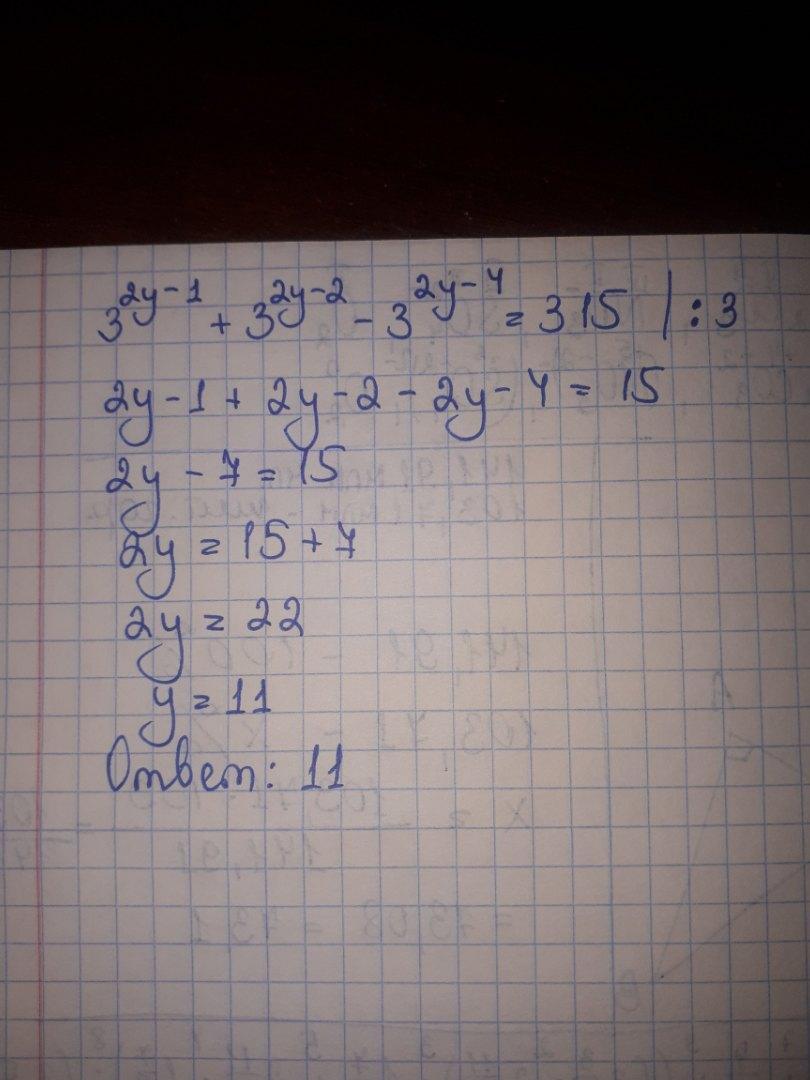 3^{2y-1} + 3^{2y-2} - 3^{2y-4} = 315 | : 3
2y - 1 + 2y - 2 - 2y - 4 = 15
2y - 7 = 15
2y = 15 + 7
2y = 22
y = 11
Ответ: 11